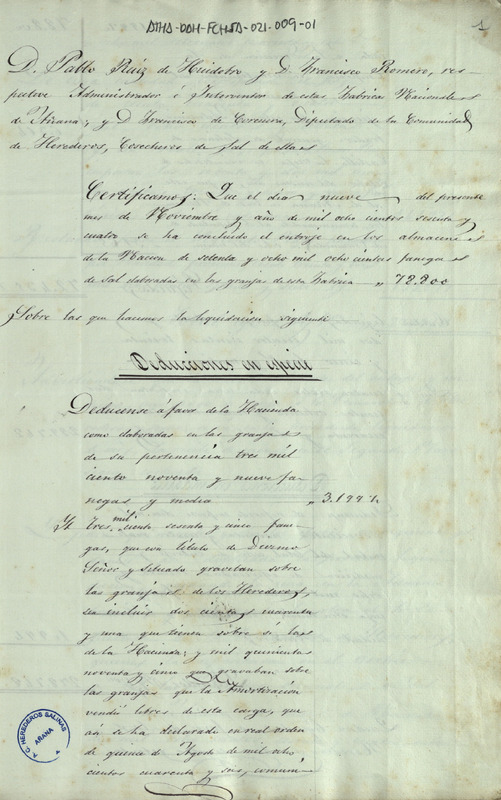 ATHA-DAH-FCHSA-021.009-01
1
D. Pablo Ruiz de Huidobro y D. Francisco Romero, res-
pective Administrador é Interventor de estas Fabricas Nacionales
de Añana; y D. Francisco de Corcuera, Diputado de la Comunidad
de Herederos, Cosecheros de Sal de ellas
Certificamos: Que el dia nueve del presente
mes de Noviembre y año de mil ocho cientos sesenta y
cuatro se ha concluido el entroje en los almacenes
de la Nacion de setenta y ocho mil ocho cientas fanegas
de sal elaboradas en las granjas de esta Fabrica „ 78.800
Sobre las que hacemos la liquidacion siguiente
Deducciones en especie
Deducense á favor de la Hacienda
como elaboradas en las granjas
de su pertenencia tres mil
ciento noventa y nueve fa-
negas y media „ 3.199½
Yt. tres mil ciento sesenta y cinco fane-
gas, que con titulo de Diezmo
Señor y Situado gravaban sobre
las granjas de los Herederos,
sin incluir dos cientas cuarenta
y una que tienen sobre sí las
de la Hacienda; y mil quinientas
noventa y cinco que gravaban sobre
las granjas que la Amortizacion
vendió libres de esta carga, que
asi se ha declarado en real orden
de quince de Agosto de mil ocho
cientos cuarenta y seis, comuni-
A.C. HEREDEROS SALINAS
AÑANA